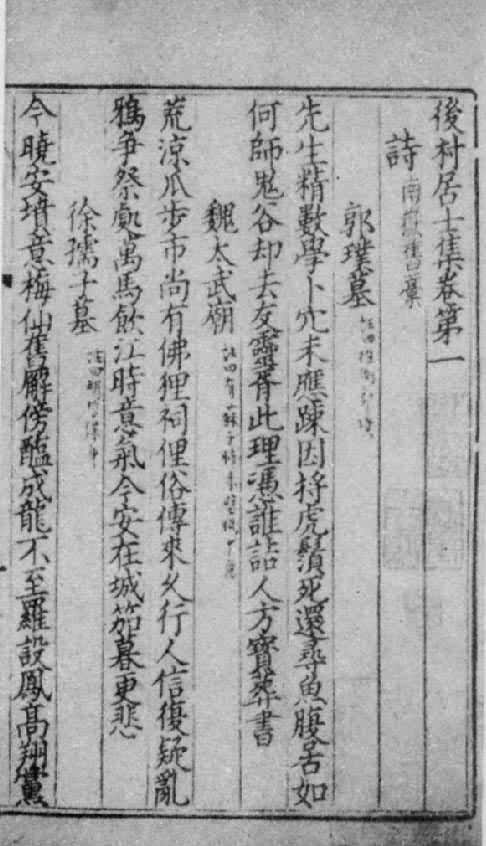 後村居士集卷第一
詩 南嶽舊藁
郭璞墓
先生精數學卜穴未應踈因捋虎鬚死還尋魚腹居如
何師鬼谷却去友靈胥此理憑誰詰人方寳葬書
魏太武廟
荒涼瓜步市尚有佛狸祠俚俗傳來乆行人信復疑亂
鴉争祭處萬馬飲江時意氣今安在城笳暮更悲
徐孺子墓
今曉安墳意梅仙舊廨傍醢成龍不至羅設鳳髙翔黨